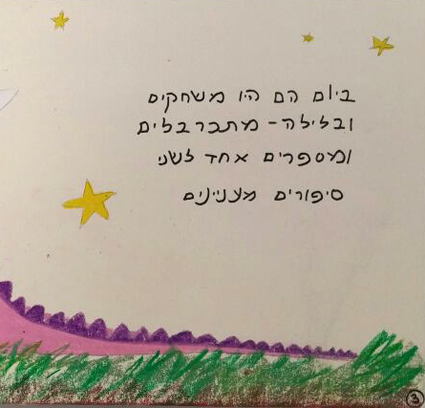 ביום הם היו משחקים
ובלילה - מתכרבלים
ומספרים אחד לשני
סיפורים מצניינים
3